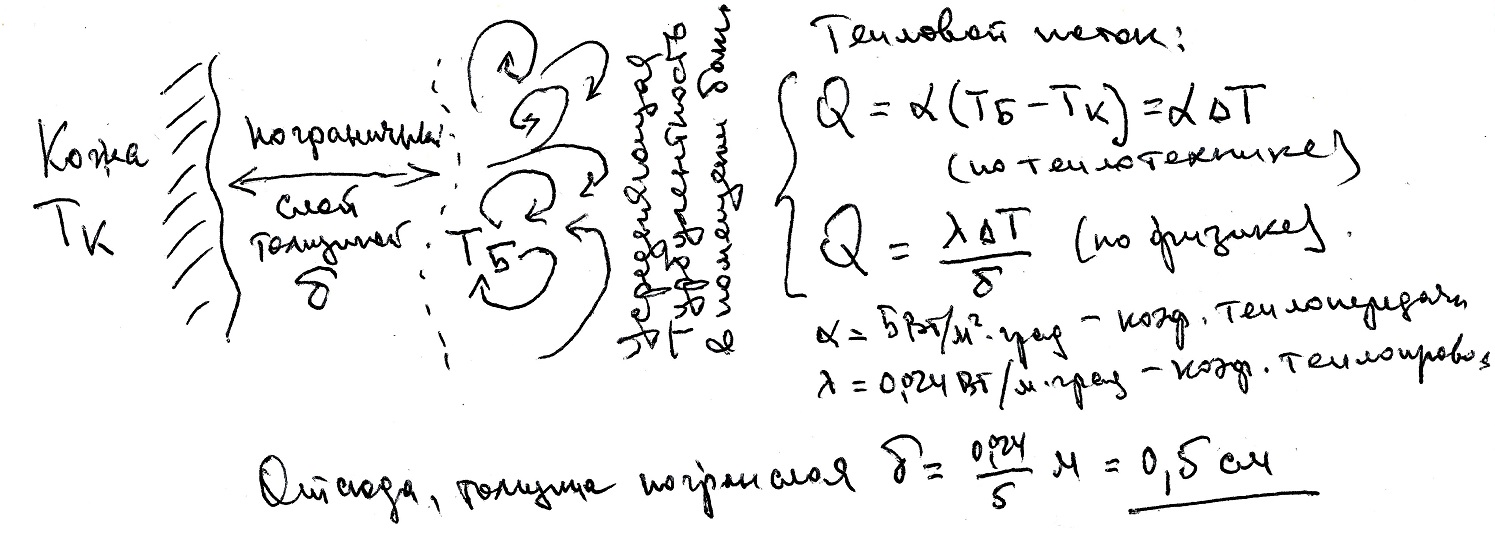 Кожа
Tк
пограничный
слой
толщиной
δ
TБ
усредняющая
турбулентность
в помещении бани
Тепловой поток:
Q = α(TБ - Tк) = αΔT
(по теплотехнике)
Q = λΔT/δ (по физике).
α = 5 Вт/м²·град - коэф. теплопередачи
λ = 0,024 Вт/м·град - коэф. теплопровод
Отсюда, толщина погранслоя δ = 0,024/5 м = 0,5 см